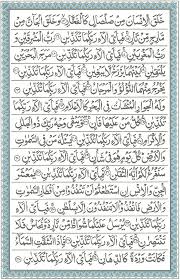 خَلَقَ الْاِنْسَانَ مِنْ صَلْصَالٍ كَالْفَخَّارِ وَخَلَقَ الْجَآنَّ مِنْ
مَّارِجٍ مِّنْ نَّارٍ فَبِاَيِّ اٰلَآءِ رَبِّكُمَا تُكَذِّبٰنِ رَبُّ الْمَشْرِقَيْنِ وَ
رَبُّ الْمَغْرِبَيْنِ فَبِاَيِّ اٰلَآءِ رَبِّكُمَا تُكَذِّبٰنِ مَرَجَ الْبَحْرَيْنِ
يَلْتَقِيٰنِ بَيْنَهُمَا بَرْزَخٌ لَّا يَبْغِيٰنِ فَبِاَيِّ اٰلَآءِ رَبِّكُمَا
تُكَذِّبٰنِ يَخْرُجُ مِنْهُمَا اللُّؤْلُؤُ وَالْمَرْجَانُ فَبِاَيِّ اٰلَآءِ رَبِّكُمَا تُكَذِّبٰنِ
وَلَهُ الْجَوَارِ الْمُنْشَاٰتُ فِي الْبَحْرِ كَالْاَعْلَامِ فَبِاَيِّ اٰلَآءِ رَبِّكُمَا
تُكَذِّبٰنِ كُلُّ مَنْ عَلَيْهَا فَانٍ وَّيَبْقٰى وَجْهُ رَبِّكَ ذُو الْجَلٰلِ
وَالْاِكْرَامِ فَبِاَيِّ اٰلَآءِ رَبِّكُمَا تُكَذِّبٰنِ يَسْـَٔلُهٗ مَنْ فِي السَّمٰوٰتِ
وَالْاَرْضِ كُلَّ يَوْمٍ هُوَ فِيْ شَاْنٍ فَبِاَيِّ اٰلَآءِ رَبِّكُمَا تُكَذِّبٰنِ
سَنَفْرُغُ لَكُمْ اَيُّهَ الثَّقَلٰنِ فَبِاَيِّ اٰلَآءِ رَبِّكُمَا تُكَذِّبٰنِ يٰمَعْشَرَ
الْجِنِّ وَالْاِنْسِ اِنِ اسْتَطَعْتُمْ اَنْ تَنْفُذُوْا مِنْ اَقْطَارِ السَّمٰوٰتِ
وَالْاَرْضِ فَانْفُذُوْا لَا تَنْفُذُوْنَ اِلَّا بِسُلْطٰنٍ فَبِاَيِّ اٰلَآءِ
رَبِّكُمَا تُكَذِّبٰنِ يُرْسَلُ عَلَيْكُمَا شُوَاظٌ مِّنْ نَّارٍ وَّنُحَاسٌ فَلَا
تَنْتَصِرٰنِ فَبِاَيِّ اٰلَآءِ رَبِّكُمَا تُكَذِّبٰنِ فَاِذَا انْشَقَّتِ السَّمَآءُ
فَكَانَتْ وَرْدَةً كَالدِّهَانِ فَبِاَيِّ اٰلَآءِ رَبِّكُمَا تُكَذِّبٰنِ